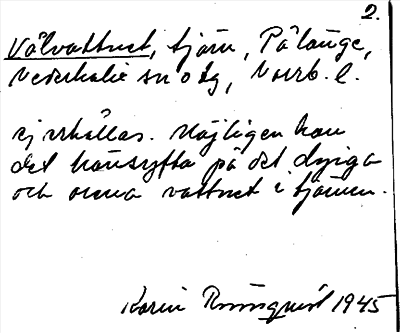 2.
Välvattnet, tjärn, Pålänge,
Nederkalix sn o tg, Norrb. l.
ej utkallas. Möjligen kan
det hänsyfta på det dyiga
och vattnet i tjärnen.
Karin 1945